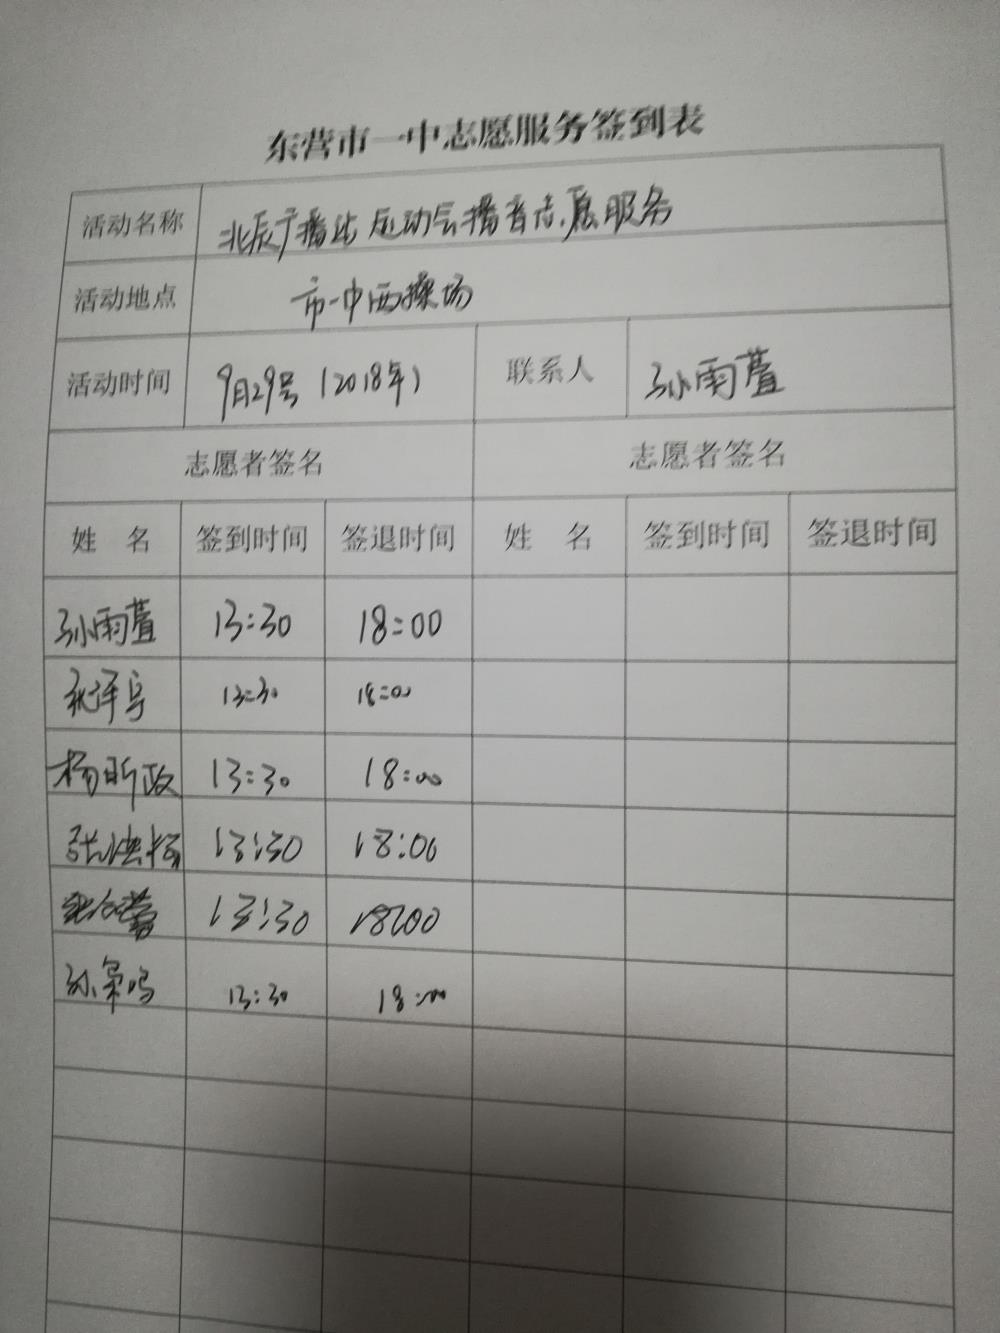 东营市一中志愿服务签到表
活动名称 北辰广播站运动会播音志愿服务
活动地点 市一中西操场
活动时间 9月29号（2018年） 联系人 孙雨萱
志愿者签名 志愿者签名
姓 名 签到时间 签退时间 姓 名 签到时间 签退时间
孙雨萱 13:30 18:00
13:30 18:00
杨昕政 13:30 18:00
13:30 18:00
13:30 18:00
13:30 18:00